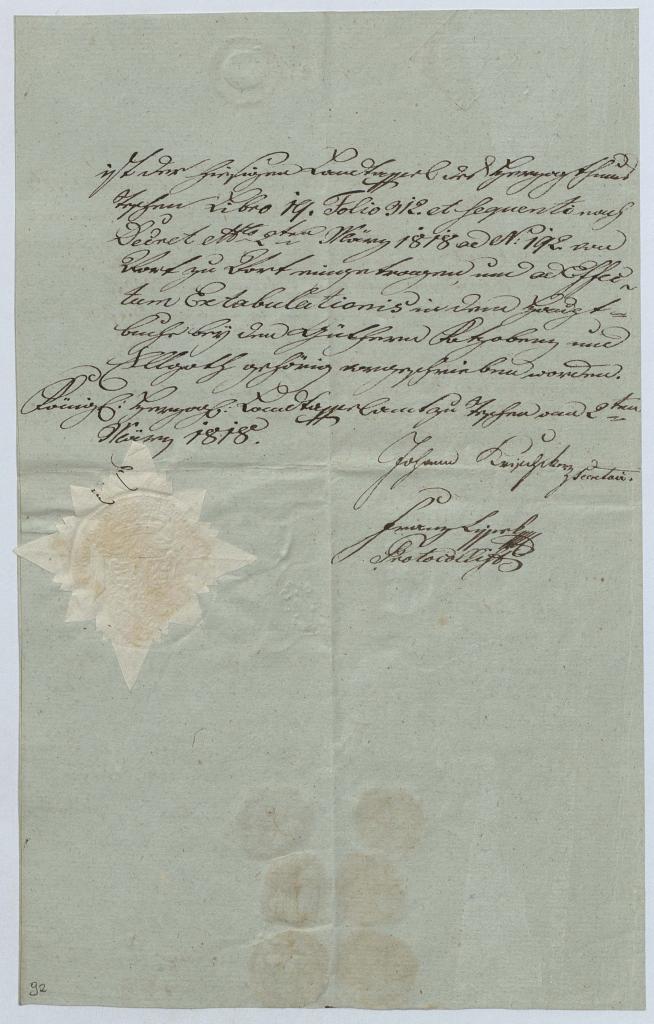 ist der hiesigen Landtaffel des Herzogthums
Teschen Libro 19. Folio 312. et sequenti nach
Decret ddto 2ten März 1818 ad N: 192 von
Wort zu Wort eingetragen, und ad Effec-
tum Extabulationis in dem Haupt-
buche bey den Güthern und
Ellgoth gehörig vorgeschrieben worden.
Königl: Herzogl: Landtaffelamt zu Teschen am 2ten
März 1818.
Johann Secretair.
Franz
Protocollist
92